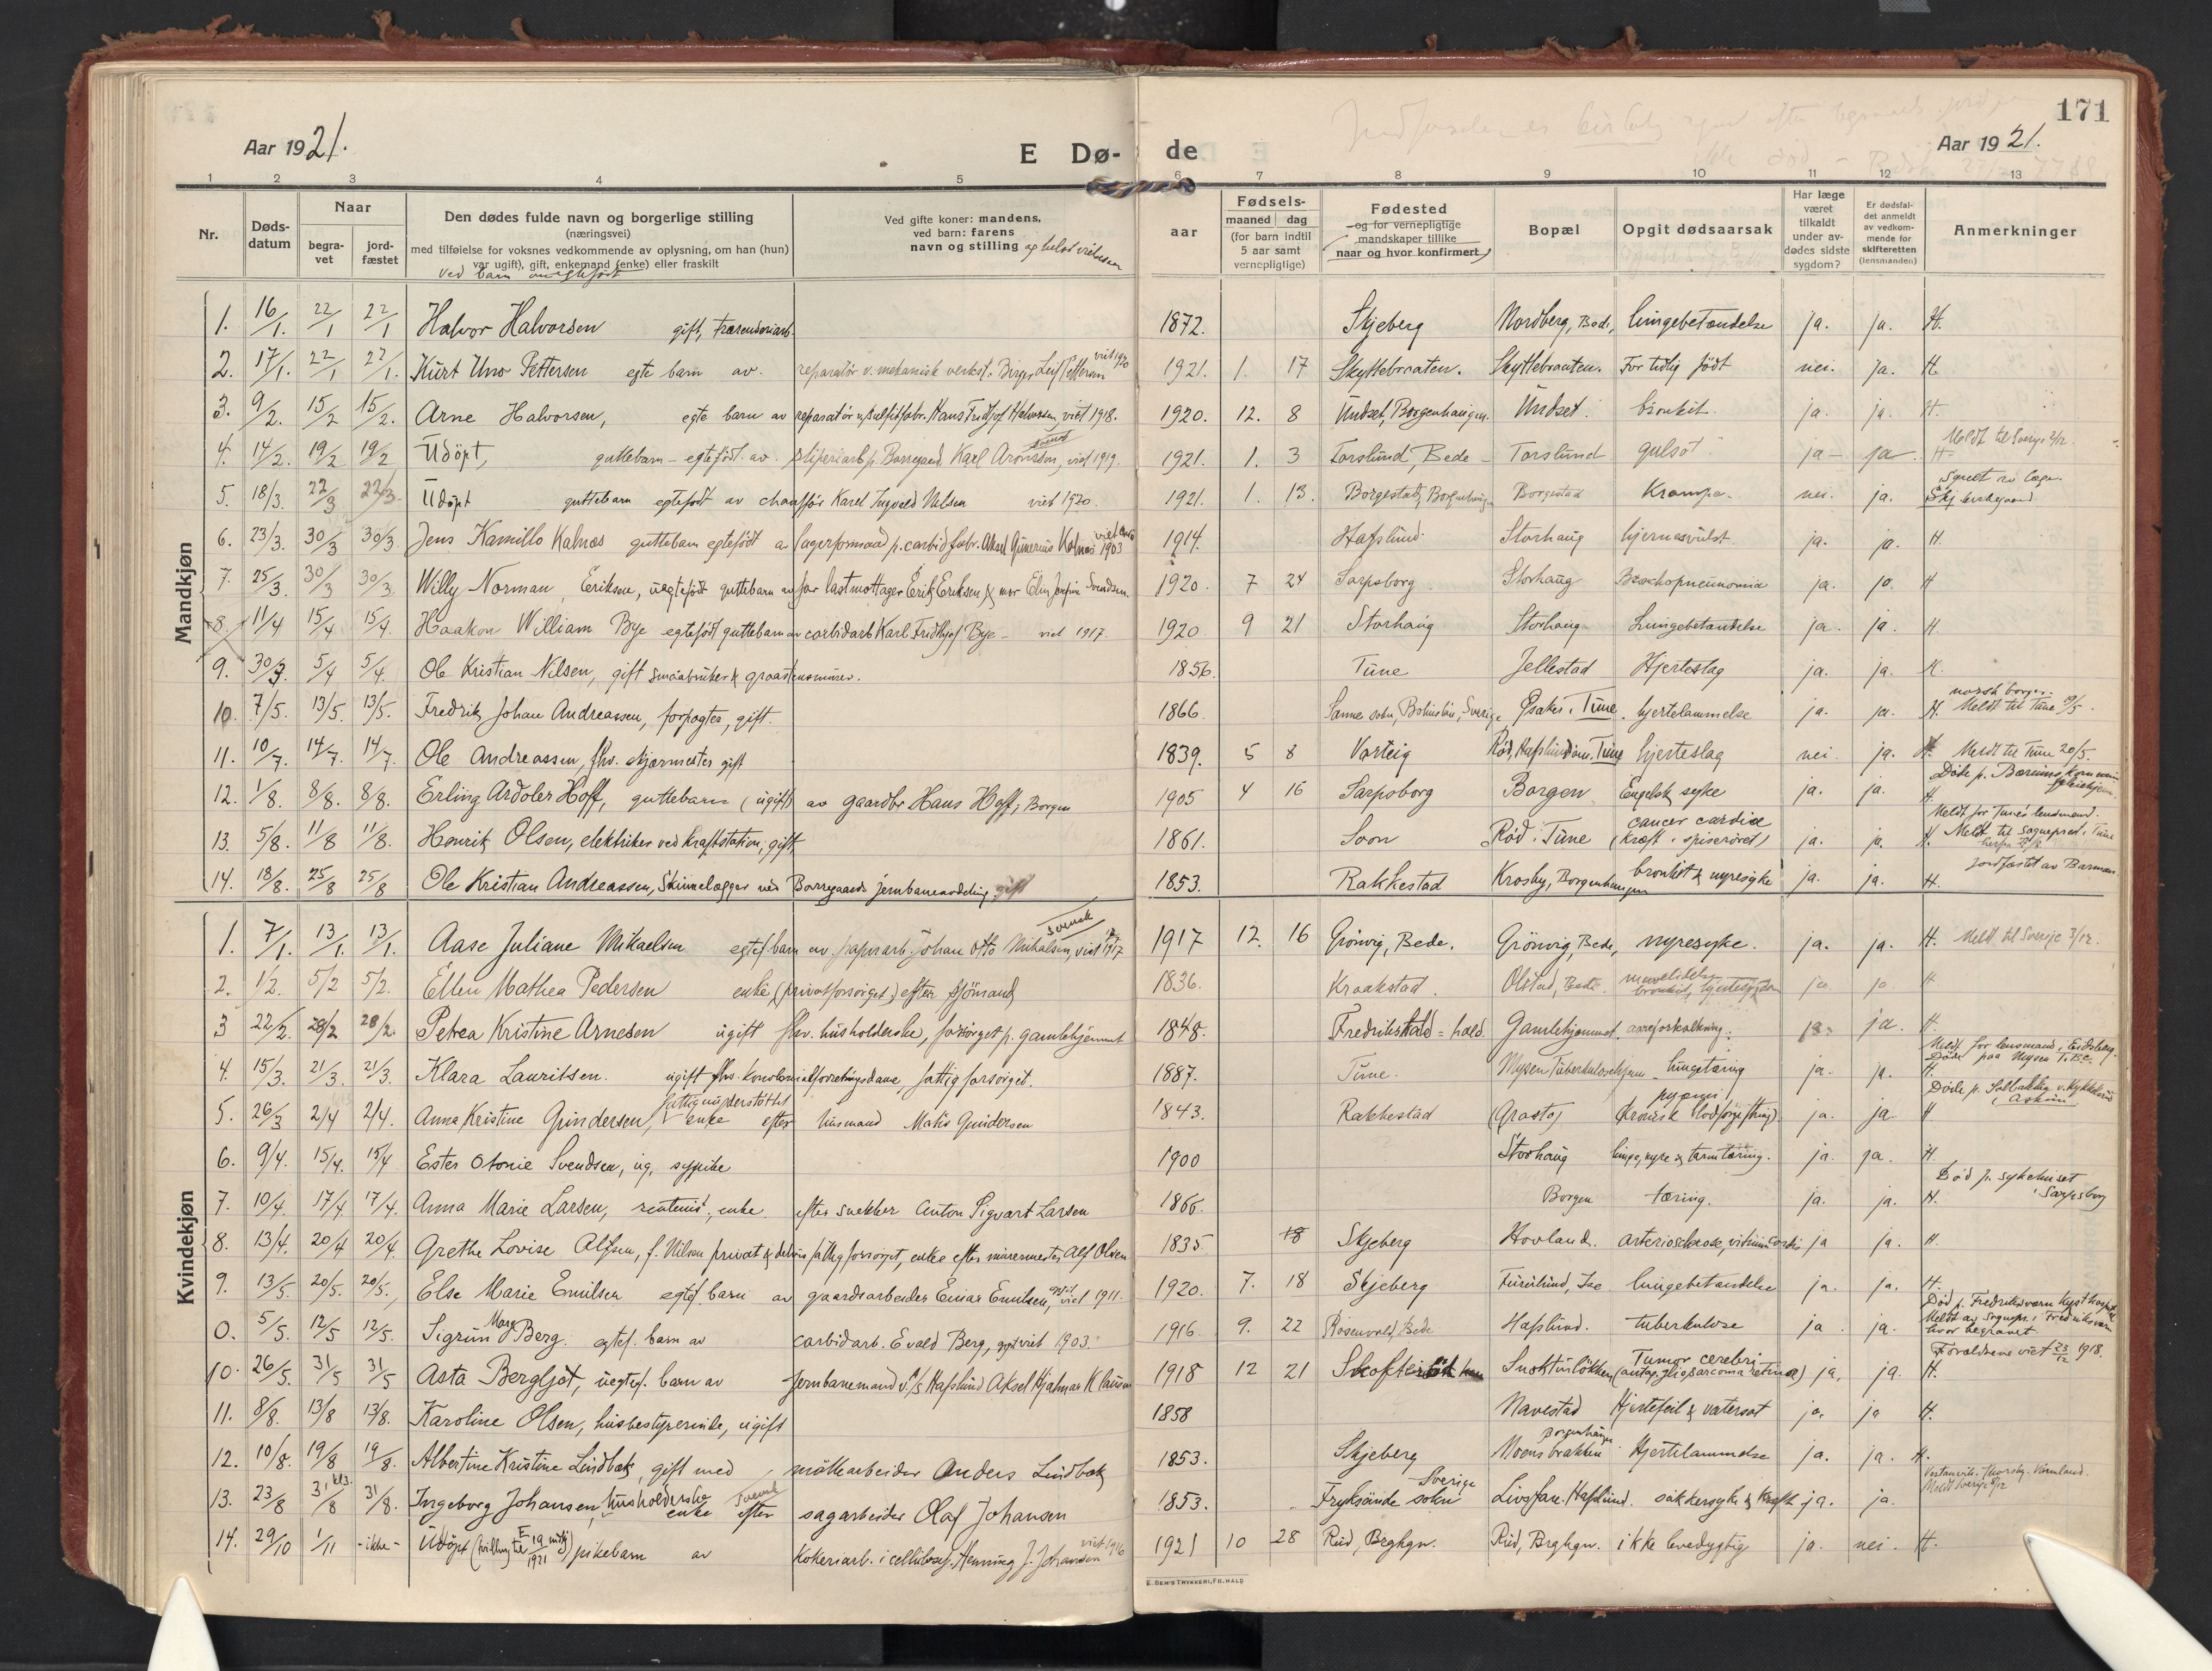 171
Aar 1921.
E Dø-
de
Aar 1921.
1 2 3 4 5 6 7 8 9 10 11 12 13
Nr.
Døds-
datum
Naar
begra-
vet
jord-
fæstet
Den dødes fulde navn og borgerlige stilling
(næringsvei)
med tilføielse for voksnes vedkommende av oplysning, om han (hun)
var ugift), gift, enkemand (enke) eller fraskilt
Ved gifte koner: mandens,
ved barn: farens
navn og stilling
aar
Fødsels-
maaned dag
(for barn indtil
5 aar samt
vernepligtige)
Fødested
og for vernepligtige
mandskaper tillike
naar og hvor konfirmert
Bopæl
Opgit dødsaarsak
Har læge
været
tilkaldt
under av-
dødes sidste
sygdom?
Er dødsfal-
det anmeldt
av vedkom-
mende for
skifteretten
(lensmanden)
Anmerkninger
Mandkjøn
1. 16/1. 22/1 22/1 Halvor Halvorsen gift, 1872. Skjeberg Nordberg, Bede, lungebetændelse ja. ja. H.
2. 17/1. 22/1 22/1. Kurt Uno Pettersen egte barn av. reparatør v. mekanisk verkst. Birger Leif Pettersen viet 1920 1921. 1. 17 Skyttebraaten. Skyttebraaten. For tidlig født nei. ja. H.
3. 9/2. 15/2 15/2. Arne Halvorsen, egte barn av reparatør v. sulfitfabr. Hans Fridtjof Halvorsen, viet 1918. 1920. 12. 8 Undset, Borgenhaugen. Undset. bronkit. ja. ja. H.
4. 14/2. 19/2 19/2 Udöpt, guttebarn - egtefödt. av. sliperiarb. p. Borregaard Karl Aronsson, viet 1919. svensk 1921. 1. 3 Torslund, Bede - Torslund gulsot ja - ja - H. Meldt til Sverige 2/12.
5. 18/3. 22/3 22/3. Udöpt guttebarn egtefödt av chauffør Karel Ingvald Nelsen viet 1920. 1921. 1. 13. Borgestad, Borgenhaugen Borgestad Krampe. nei. ja.
6. 23/3. 30/3 30/3 Jens Kamillo Kalnæs guttebarn egtefödt a lagerformand p. carbidfabr. Aksel Gunerius Kalnæs viet 1903 1914. Hafslund. Storhaug hjernesvulst. ja. ja. H.
7. 25/3. 30/3 30/3. Willy Norman, Eriksen, uegtefödt guttebarn av far lastmottager Erik Eriksen & mor Elin Josefine Svendsen. 1920. 7 24 Sarpsborg Storhaug Bronchopneumonia ja. ja. H
8. 11/4 15/4 15/4. Haakon William Bye egtefödt guttebarn av carbidarb Karl Fridthjof Bye - viet 1917. 1920 9 21 Storhaug Storhaug Lungebetændelse ja. ja. H.
9. 30/3. 5/4 5/4. Ole Kristian Nilsen, gift smaabruker & graastensminer. 1856. Tune Jellestad Hjerteslag ja. ja. H.
10. 7/5. 13/5. 13/5. Fredrik Johan Andreassen, forpagter, gift. 1866. Sanne sokn, Bohuslän, Sverige Opsaker i Tune. hjertelammelse ja. ja. H. norsk borger. Meldt til Tune
11. 10/7. 14/7. 14/7. Ole Andreassen, fhv. skjærmester gift 1839. 5 8 Varteig Rød, Hafslundsøen, Tune hjerteslag nei. ja. H. Meldt til Tune 20/5.
12. 1/8. 8/8. 8/8. Erling Ardoler Hoff, guttebarn (ugift) av gaardbr Hans Hoff, Borgen 1905 4 16 Sarpsborg Borgen Engelsk syke ja. ja. H. Døde p. Bærums
13. 5/8. 11/8 11/8. Henrik Olsen, elektriker ved kraftstation, gift, 1861. Soon Rød i Tune cancer cardiæ (kræft i spiserøret) ja. ja. H. Meldt for Tunes lensmand. Meldt til sognepræst i Tune
14. 18/8. 25/8 25/8 Ole Kristian Andreassen, Skinnelægger ved Borregaards jernbaneavdeling gift 1853. Rakkestad Krosby, Borgenhaugen bronkit & nyresyke ja. ja. H. jordfæstet av Barman
Kvindekjøn
1. 7/1. 13/1. 13/1. Aase Juliane Mikaelsen egtef. barn av. papirarb. Johan Otto Mikalsen, viet 1917 svensk 1917 12. 16 Grönvig, Bede. Grönvig, Bede, nyresyke. ja. ja. H. Meldt til Sverige 3/12.
2. 1/2. 5/2 5/2. Ellen Mathea Pedersen enke (privatforsörget) efter sjömand 1836. Kraakstad. Olstad, Bede. ja ja H
3 22/2. 28/2 28/2. Petrea Kristine Arnesen ugift fhv. husholderske, forsörget p. gamlehjemmet 1848. Fredrikshald = hald. Gamlehjemmet. aareforkalkning. ja. ja. H.
4. 15/3. 21/3. 21/3. Klara Lauritsen. ugift fhv. forretningsdame, fattigforsörget. 1887. Tune. Mysen Tuberkulosehjem lungetæring ja. ja. H. Meldt for lensmand i Eidsberg. Döde paa Mysen T.b.c.
5. 26/3 2/4 2/4. Anna Kristine Gundersen, fattigunderstöttet enke efter husmand Matis Gundersen 1843. Rakkestad (Grasto) (kronisk blodforgiftning). ja. ja H
6. 9/4. 15/4. 15/4 Ester Otonie Svendsen, ug. sypike 1900 Storhaug lunge, nyre og tarmtæring. ja. ja. H.
7. 10/4. 17/4 17/4. Anna Marie Larsen, rentenist, enke. efter snekker Anton Sigvart Larsen 1866. Borgen tæring. ja. ja. H. Död p. sykehuset i Sarpsborg
8. 13/4. 20/4 20/4. Grethe Lovise Alfsen, f. Nilsen privat & delvis fattigforsörget, enke efter minermester Alf Olsen 1835. 18 Skjeberg Hovland. arteriosclerose, vitium cordis ja ja. H.
9. 13/5 20/5. 20/5. Else Marie Emilsen egtef. barn av gaardsarbeider Einar Emilsen, viet 1911. 1920. 7. 18 Skjeberg Furulund, Ise lungebetændelse ja. ja. H.
0. 5/5. 12/5 12/5. Sigrun Marg Berg. egtef. barn av carbidarb. Evald Berg, viet 1903. 1916 9. 22 Rosenvold, Bede Hafslund. tuberkulose ja ja. Död p. Fredriksværn Kysthospital Meldt av Sognepr. i Fredriksværn hvor begravet
10. 26/5. 31/5 31/5 Asta Bergljot, uegtef. barn av jernbanemand v. A/S Hafslund Aksel Hjalmar Klausen 1918 12 21 Snoktvisløkken Tumor cerebri (antag. gliosarcoma retinæ) ja, ja. H. Forældrene viet 23/12 1918.
11. 8/8. 13/8 13/8. Karoline Olsen, husbestyrerinde, ugift 1858 Navestad Hjertefeil & vatersot ja. ja H.
12. 10/8. 19/8 19/8. Albertine Kristine Lindbæk, gift med möllearbeider Anders Lindbæk 1853. Skjeberg Moensbrækken Borgenhaugen Hjertelammelse ja. ja. H.
13. 23/8 31/8 31/8. Ingeborg Johansen, husholderske enke efter svensk sagarbeider Olaf Johansen 1853. Fryksände sokn Sverige Livsfare. Hafslund. sukkersyke & kræft ja. ja.
14. 29/10 1/11 - ikke - Udöpt pikebarn av Kokeriarb. i cellulosef. Henning J. Johansen viet 1916 1921 10 28 Rud, Brghgn. Rud, Brghgn. ikke levedygtig ja. nei. H.
E. SEM'S TRYKKERI, FR.HALD